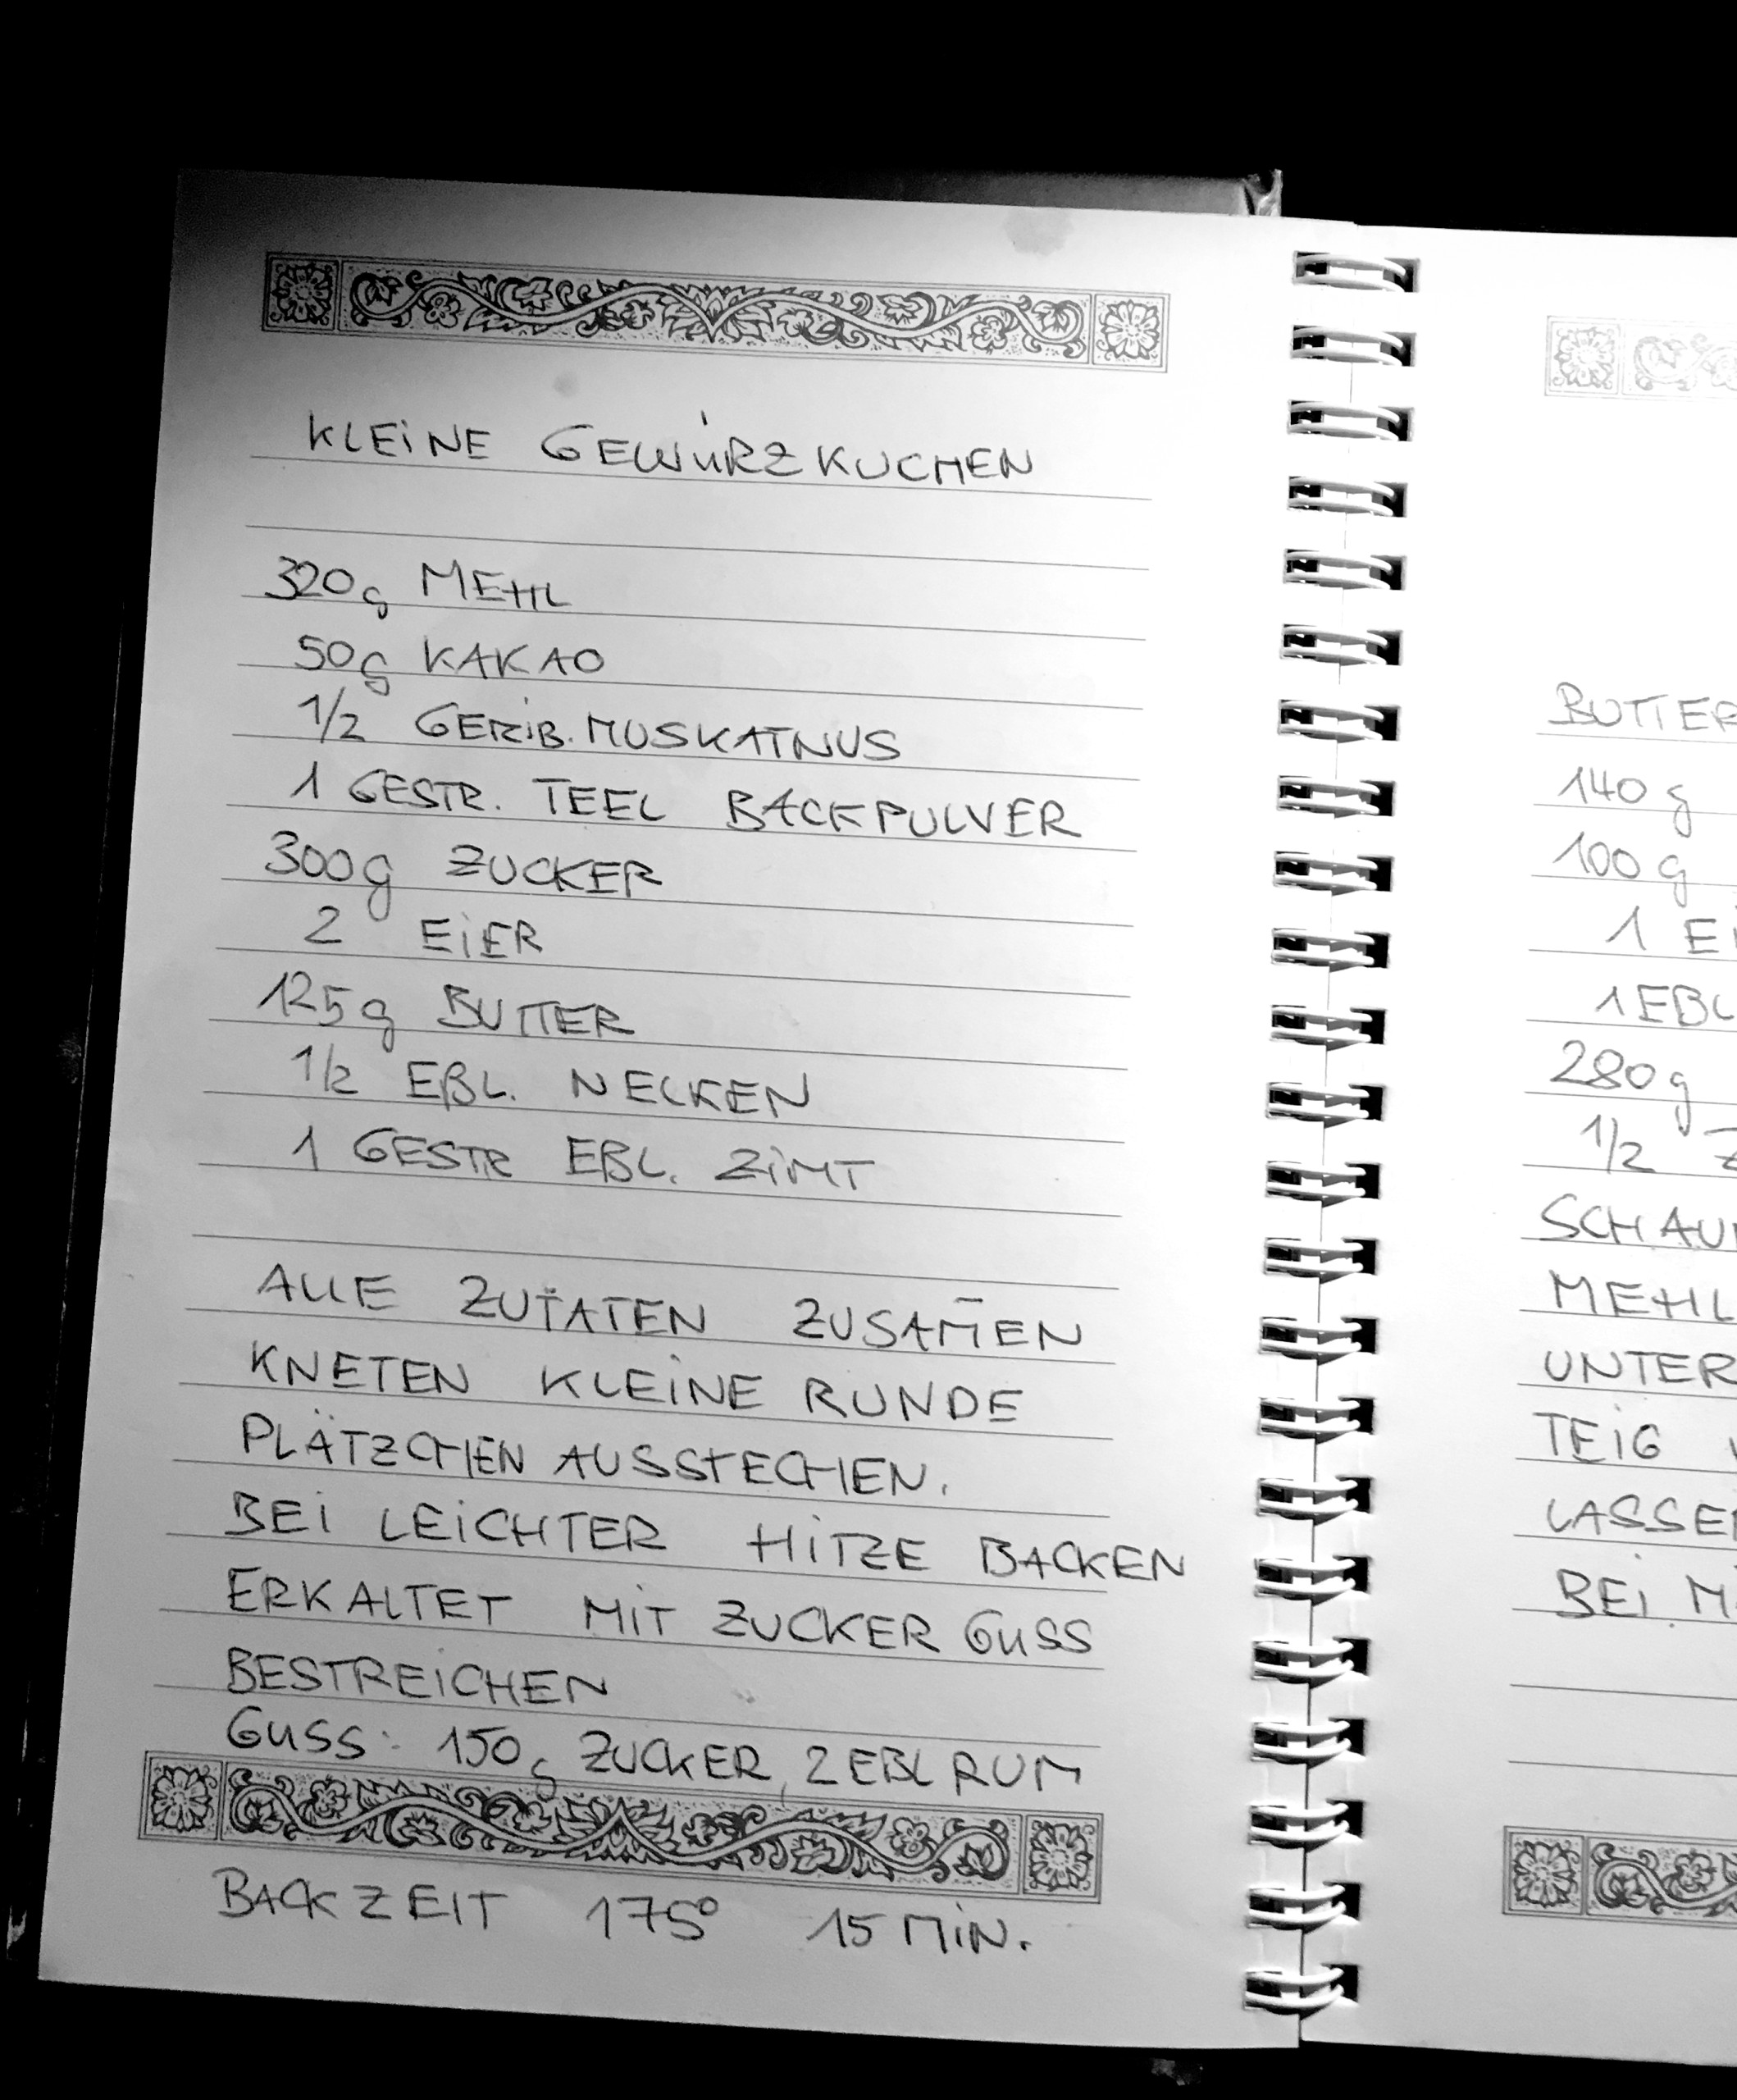 KLEINE GEWÜRZKUCHEN
320g MEHL
50g KAKAO
1/2 GERIB. MUSKATNUS
1 GESTR. TEEL BACKPULVER
300g ZUCKER
2 EIER
125g BUTTER
1/2 EßL. NELKEN
1 GESTR EßL. ZIMT
ALLE ZUTATEN ZUSAM̄EN
KNETEN KLEINE RUNDE
PLÄTZCHEN AUSSTECHEN.
BEI LEICHTER HITZE BACKEN
ERKALTET MIT ZUCKER GUSS
BESTREICHEN
GUSS: 150g ZUCKER, 2 EßL RUM
BACKZEIT 175° 15 MIN.
BUTTER
140 g
100 g
1 Ei
1 EßL
280 g
1/2
SCHAU
MEHL
UNTER
TEIG
LASSE
BEI M